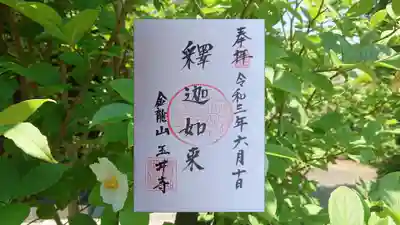 奉拝 令和三年六月十日
釋迦如来
金龍山 玉井寺